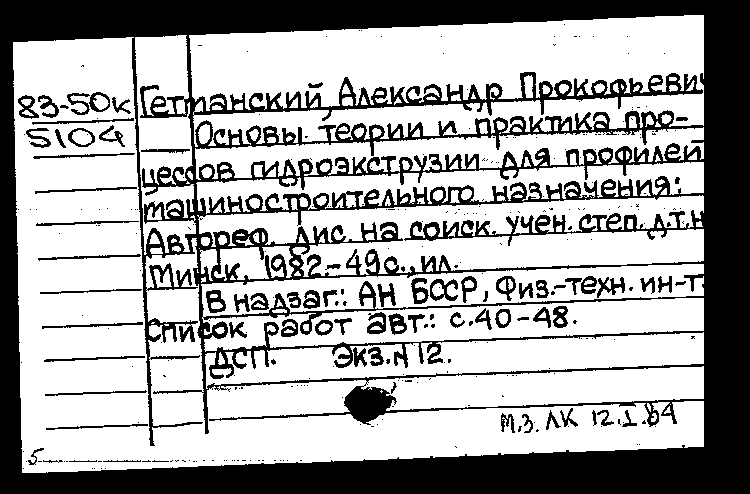 83-50к Гетманский, Александр Прокофьевич
5104 Основы теории и практика про-
цессов гидроэкструзии для профилей
машиностроительного назначения:
Автореф. дис. на соиск. учен. степ. д.т.н
Минск, 1982.-49с., ил.
В надзаг.: АН БССР, Физ.-техн. ин-т.
Список работ авт.: с.40-48.
ДСП. Экз.N12.
М.З. ЛК 12.I.84
5